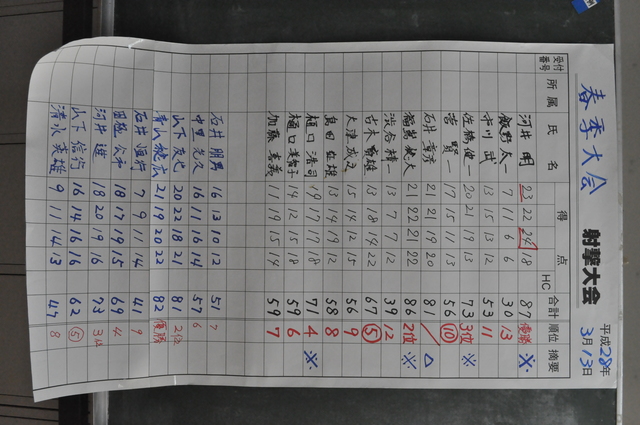 春季大会 射撃大会 平成28年3月13日
受付番号 所属 氏名 得点 HC 合計 順位 摘要
河井 明 23 22 24 18 87 優勝 ※
飯野 太一 7 11 6 6 30 13
市川 武 13 15 13 12 53 11
佐橋 健一 20 21 19 13 73 3位 ※
菅 賢一 17 15 11 13 56 ⑩
石井 21 21 19 20 81 / △
福島 21 22 21 22 86 2位 ※
渋倉 精一 13 7 7 12 39 12
古木 雄 13 18 14 22 67 ⑤
大津 成 15 14 12 15 56 9
島田 雄 13 14 19 12 58 8
樋口 浩司 19 17 17 18 71 4 ※
樋口 14 12 15 18 59 6
加藤 義 11 19 15 14 59 7
石井 朋男 16 13 10 12 51 7
中里 久 16 11 16 14 57 6
山下 友也 20 22 18 21 81 2位
青山 21 19 20 22 82 優勝
石井 7 9 11 14 41 9
公和 18 17 19 15 69 4
河井 進 18 20 19 16 73 3位
山下 信行 16 14 16 16 62 ⑤
清水 英雄 9 11 14 13 47 8